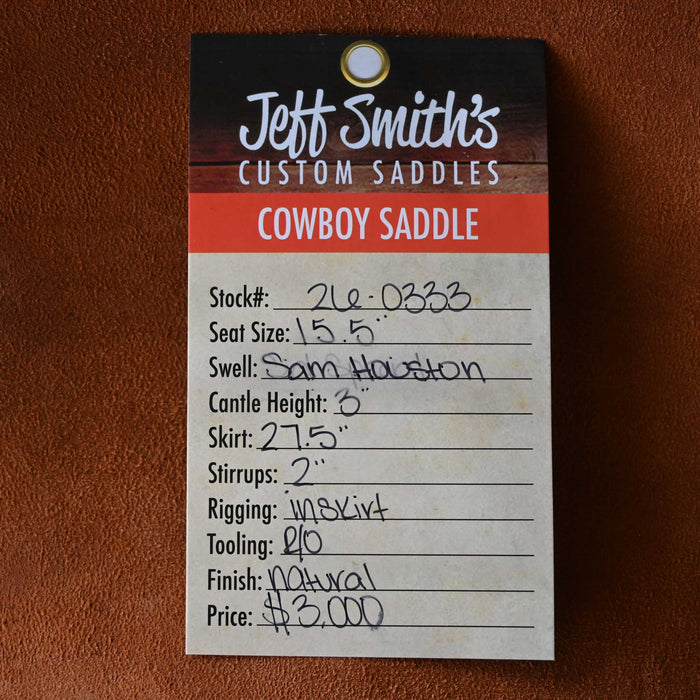 Jeff Smith's
CUSTOM SADDLES
COWBOY SADDLE
Stock#: 26-0333
Seat Size: 15.5"
Swell: Sam Houston
Cantle Height: 3"
Skirt: 27.5"
Stirrups: 2"
Rigging: inskirt
Tooling: R/O
Finish: natural
Price: $3,000